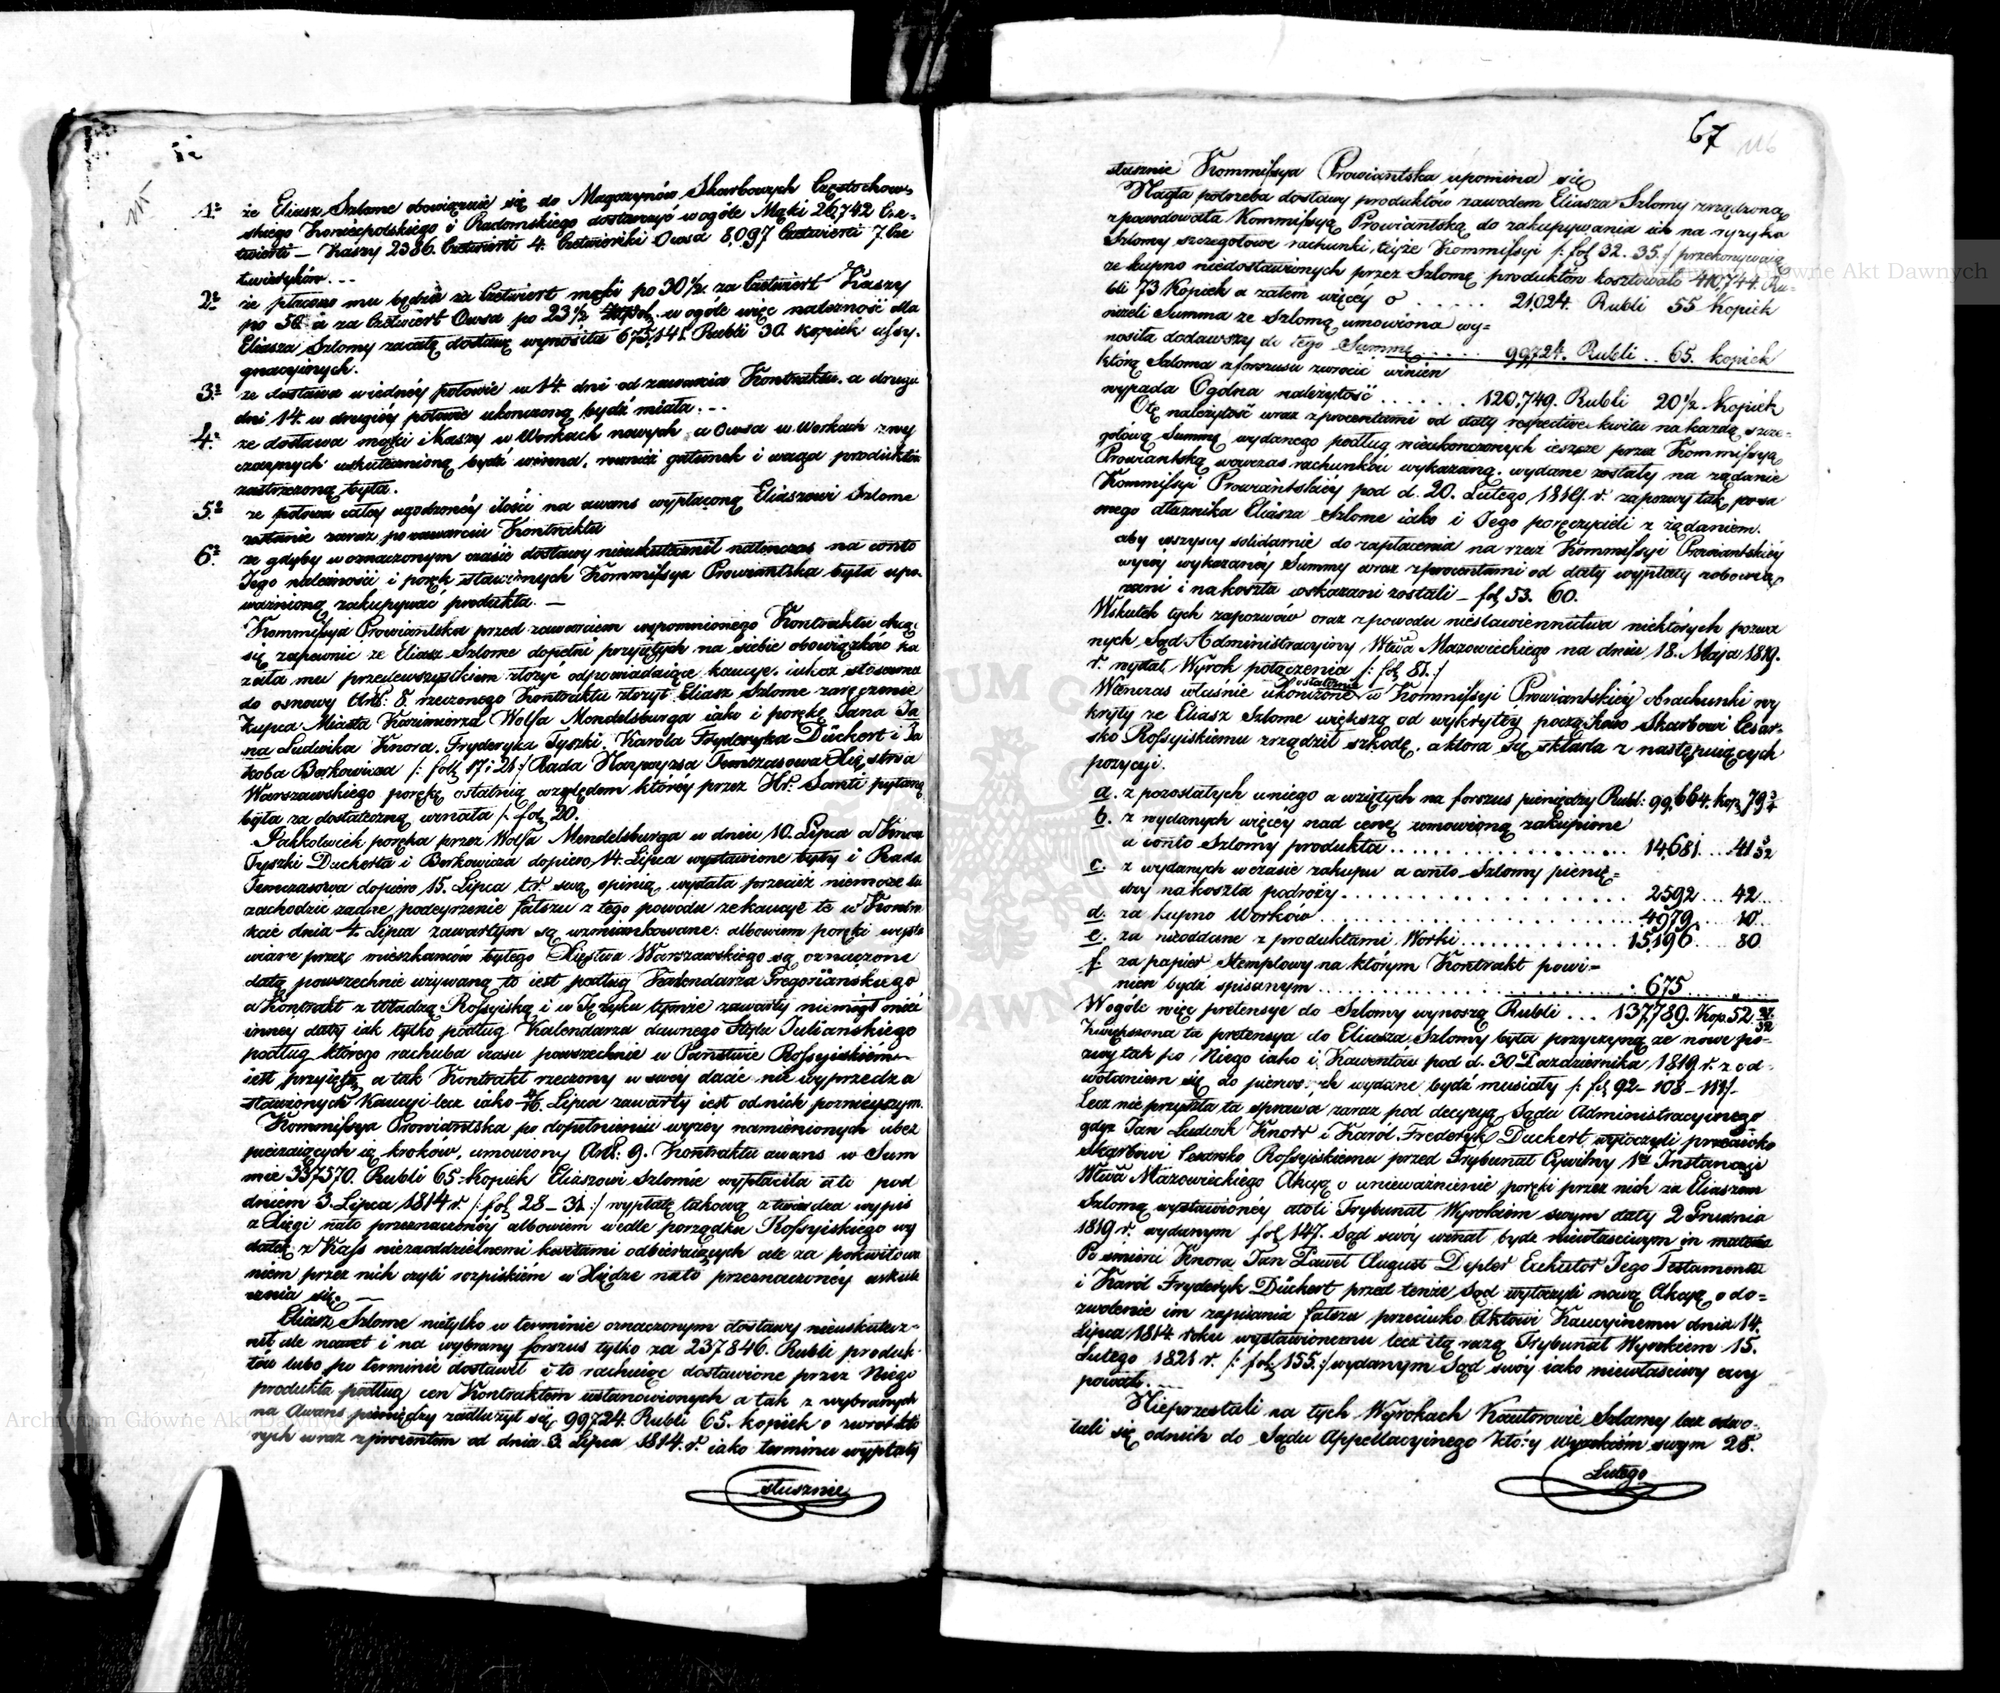 1º że Eliasz Szlome obowiązuie się do Magazynów Skarbowych Częstochow-
skiego Koniecpolskiego i Radomskiego dostarczyć wogóle Mąki 26,742 Cze-
twierti — Kaszy 2386. Czetwierti 4. Czetwieriki Owsa 8,097 Czetwierti 7. Cze
twieryków. --
2º że płacono mu będzie za Czetwiert mąki po 30½. za Czetwiert Kaszy
po 50. a za Czetwiert Owsa po 23½ w ogóle więc należność dla
Eliasza Szlomy za całą dostawę wynosiła 675,141. Rubli 30. kopiek assy-
gnacyinych.
3º że dostawa w iednéy połowie w 14. dni od zawarcia Kontraktu. a druga
dni 14. w drugiéy połowie ukończoną bydź miała. --
4º że dostawa mąki i Kaszy w Workach nowych, a Owsa w Workach zwy
czaynych uskutecznioną bydź winna, również gatunek i waga produktów
zastrzeżoną była.
5º że połowa całéy ugodzonéy ilości na awans wypłaconą Eliaszowi Szlome
zostanie zaraz po zawarciu Kontraktu
6º że gdyby w oznaczonym czasie dostawy nieuskutecznił natenczas na conto
Iego należności i poręk stawionych Kommissya Prowiantska była upo-
ważnioną zakupywać produkta. —
Kommissya Prowiantska przed zawarciem wspomnionego Kontraktu chcąc
się zapewnić że Eliasz Szlome dopełni przyiętych na siebie obowiązków ka
zała mu przedewszystkiem złożyć odpowiadaiące kaucye. iakoż stosownie
do osnowy Artł: 8. rzeczonego Kontraktu złożył Eliasz Szlome zaręczenie
Kupca Miasta Kazimierza Wolfa Mendelsburga iako i porękę Jana Ja
na Ludwika Knora, Fryderyka Tyszki, Karola Fryderyka Düchert i Ja
koba Berkowicza /: fol. 17 i 21 :/ Rada Naywyższa Tymczasowa Xięstwa
Warszawskiego porękę ostatnią względem któréy przez Hr. Santi pytaną
była za dostateczną uznała /: fol. 20.
Jakkolwiek poręka przez Wolfa Mendelsburga w dniu 10. Lipca a Knora
Tyszki Ducherta i Berkowicza dopiero 14. Lipca wystawione były i Rada
Tymczasowa dopiero 15. Lipca t. r. swą opinią wydała przecież niemoże tu
zachodzić żadne podeyrzenie fałszu z tego powodu że kaucye te w Kontra
kcie dnia 4. Lipca zawartym są wzmiankowane: albowiem poręki wysta
wiane przez mieszkańców byłego Xięstwa Warszawskiego są oznaczone
datą powszechnie używaną to iest podług Kalendarza Gregoriańskiego
a Kontrakt z Władzą Rossyiską i w Ięzyku tymże zawarty niemógł mieć
inney daty iak tylko podług Kalendarza dawnego Stylu Juliańskiego
podług którego rachuba czasu powszechnie w Państwie Rossyiskiém
iest przyięta, a tak Kontrakt rzeczony w swéy dacie nie wyprzedza
stawionych Kaucyi lecz iako 4/16. Lipca zawarty iest od nich poznieyszym.
Kommissya Prowiantska po dopełnieniu wyżey namienionych ubez
pieczaiących ią kroków, umowiony Artł: 9. Kontraktu awans w Sum
mie 337570. Rubli 65. Kopiek Eliaszowi Szlomie wypłaciła a to pod
dniem 3. Lipca 1814 r. /: fol. 28–31 :/ wypłatę takową stwierdza wypis
z Xięgi na to przeznaczonéy albowiem wedle porządku Rossyiskiego wy
datek z Kass niezaoddzielnemi kwitami odbieraiących ale za pokwitowa
niem przez nich czyli rozpiskiém w Xiędze na to przeznaczonéy uskute
cznia się. —
Eliasz Szlome nietylko w terminie oznaczonym dostawy nieuskutecz-
nił ale nawet i na wybrany forszus tylko za 237846. Rubli produk-
tów lubo po terminie dostawił i to rachuiąc dostawione przez Niego
produkta podług cen Kontraktem ustanowionych a tak z wybranych
na Awans pieniędzy zadłużył się 99724. Rubli 65. kopiek o zwrot któ
rych wraz z procentem od dnia 3. Lipca 1814. r. iako terminu wypłaty
słusznie
67
116
słusznie Kommissya Prowiantska upomina się
Nagła potrzeba dostawy produktów zawodem Eliasza Szlomy zrządzona
spowodowała Kommissyą Prowiantską do zakupywania ich na ryzyko
Szlomy szczegółowe rachunki teyże Kommissyi /: fol. 32. 35. :/ przekonywaią
że kupno niedostawionych przez Szlomę produktów kosztowało 410,744. Ru-
bli 73 Kopiek a zatém więcéy o ..... 21024. Rubli 55 Kopiek
niżeli Summa ze Szlomą umowiona wy-
nosiła dodawszy do tego Summę .... 99724. Rubli .. 65. kopiek
którą Szloma z forszusu zwrocić winien
wypada Ogólna należytość ....... 120,749. Rubli 20½ Kopiek
Otę należytość wraz z procentami od daty respective kwitu na każdą szcze-
gółową Summę wydanego podług nieukończonych ieszcze przez Kommissyą
Prowiantską wowczas rachunków wykazaną. wydane zostały na żądanie
Kommissyi Prowiantskiéy pod d. 20. Lutego 1819. r. zapozwy tak po sa
mego dłużnika Eliasza Szlome iako i Iego poręczycieli z żądaniem.
aby wszyscy solidarnie do zapłacenia na rzecz Kommissyi Prowiantskiéy
wyżéy wykazanéy Summy wraz z procentami od daty wypłaty zobowią
zani i na koszta wskazani zostali – fol. 53. 60.
Wskutek tych zapozwów oraz z powodu niestawiennictwa niektórych pozwa
nych Sąd Administracyiny Wtwa Mazowieckiego na dniu 18. Maja 1819.
r. wydał Wyrok połączenia /: fol. 81. :/
Wówczas właśnie ukończone ostatecznie w Kommissyi Prowiantskiéy obrachunki wy
kryły że Eliasz Szlome większą od wykrytey początkowo Skarbowi Cesar-
sko Rossyiskiemu zrządził szkodę, a która się składa z następuiących
pozycyi.
a. z pozostałych u niego a wziętych na forszus pieniędzy Rubl: 99,664. kop. 79 3/4
b. z wydanych więcéy nad cenę umowioną zakupione
a conto Szlomy produkta .................. 14,681 ... 41 5/32
c. z wydanych w czasie zakupu a conto Szlomy pienię-
dzy na koszta podróży .................. 2592 ... 42
d. za kupno Worków .................. 4979 ... 10
e. za nieoddane z produktami Worki .............. 15,196 ... 80
f. za papier stemplowy na którym Kontrakt powi-
nien bydź spisanym .................. 675 ... "
Wogóle więc pretensye do Szlomy wynoszą Rubli ... 137,789. Kop. 52
Zwiększona ta pretensya do Eliasza Szlomy była przyczyną że nowe po-
zwy tak po Niego iako i Kawentów pod d. 30. Października 1819 r. z od-
wołaniem się do pierwszych wydane bydź musiały /: fol. 92 – 108 – 113 /
Lecz nie przyszła ta sprawa zaraz pod decyzyą Sądu Administracyinego
gdyż Jan Ludwik Knorr i Karól Frederyk Duchert wytoczyli przeciwko
Skarbowi Cesarsko Rossyiskiemu przed Trybunał Cywilny 1éy Instancyi
Wtwa Mazowieckiego Akcyą o unieważnienie poręki przez nich za Eliaszem
Szlomą wystawionéy atoli Trybunał Wyrokiem swym daty 2 Grudnia
1819 r. wydanym fol. 147. Sąd swóy uznał bydz niewłaściwym in materia
Po śmierci Knora, Jan Paweł August Depler Exekutor Iego Testamentu
i Karól Fryderyk Düchert przed tenże Sąd wytoczyli nową Akcyą o do-
zwolenie im zapisania fałszu przeciwko Aktowi Kaucyinemu dnia 14.
Lipca 1814 roku wystawionemu lecz i tą razą Trybunał Wyrokiem 15.
Lutego 1821 r. /: fol. 155. :/ wydanym Sąd swóy iako niewłaściwy
Nieprzestali na tych Wyrokach Kautorowie Szlamy lecz odwo-
łali się od nich do Sądu Appellacyinego który Wyrokiem swym 28.
Lutego
Archiwum Główne Akt Dawnych
Archiwum Główne Akt Dawnych